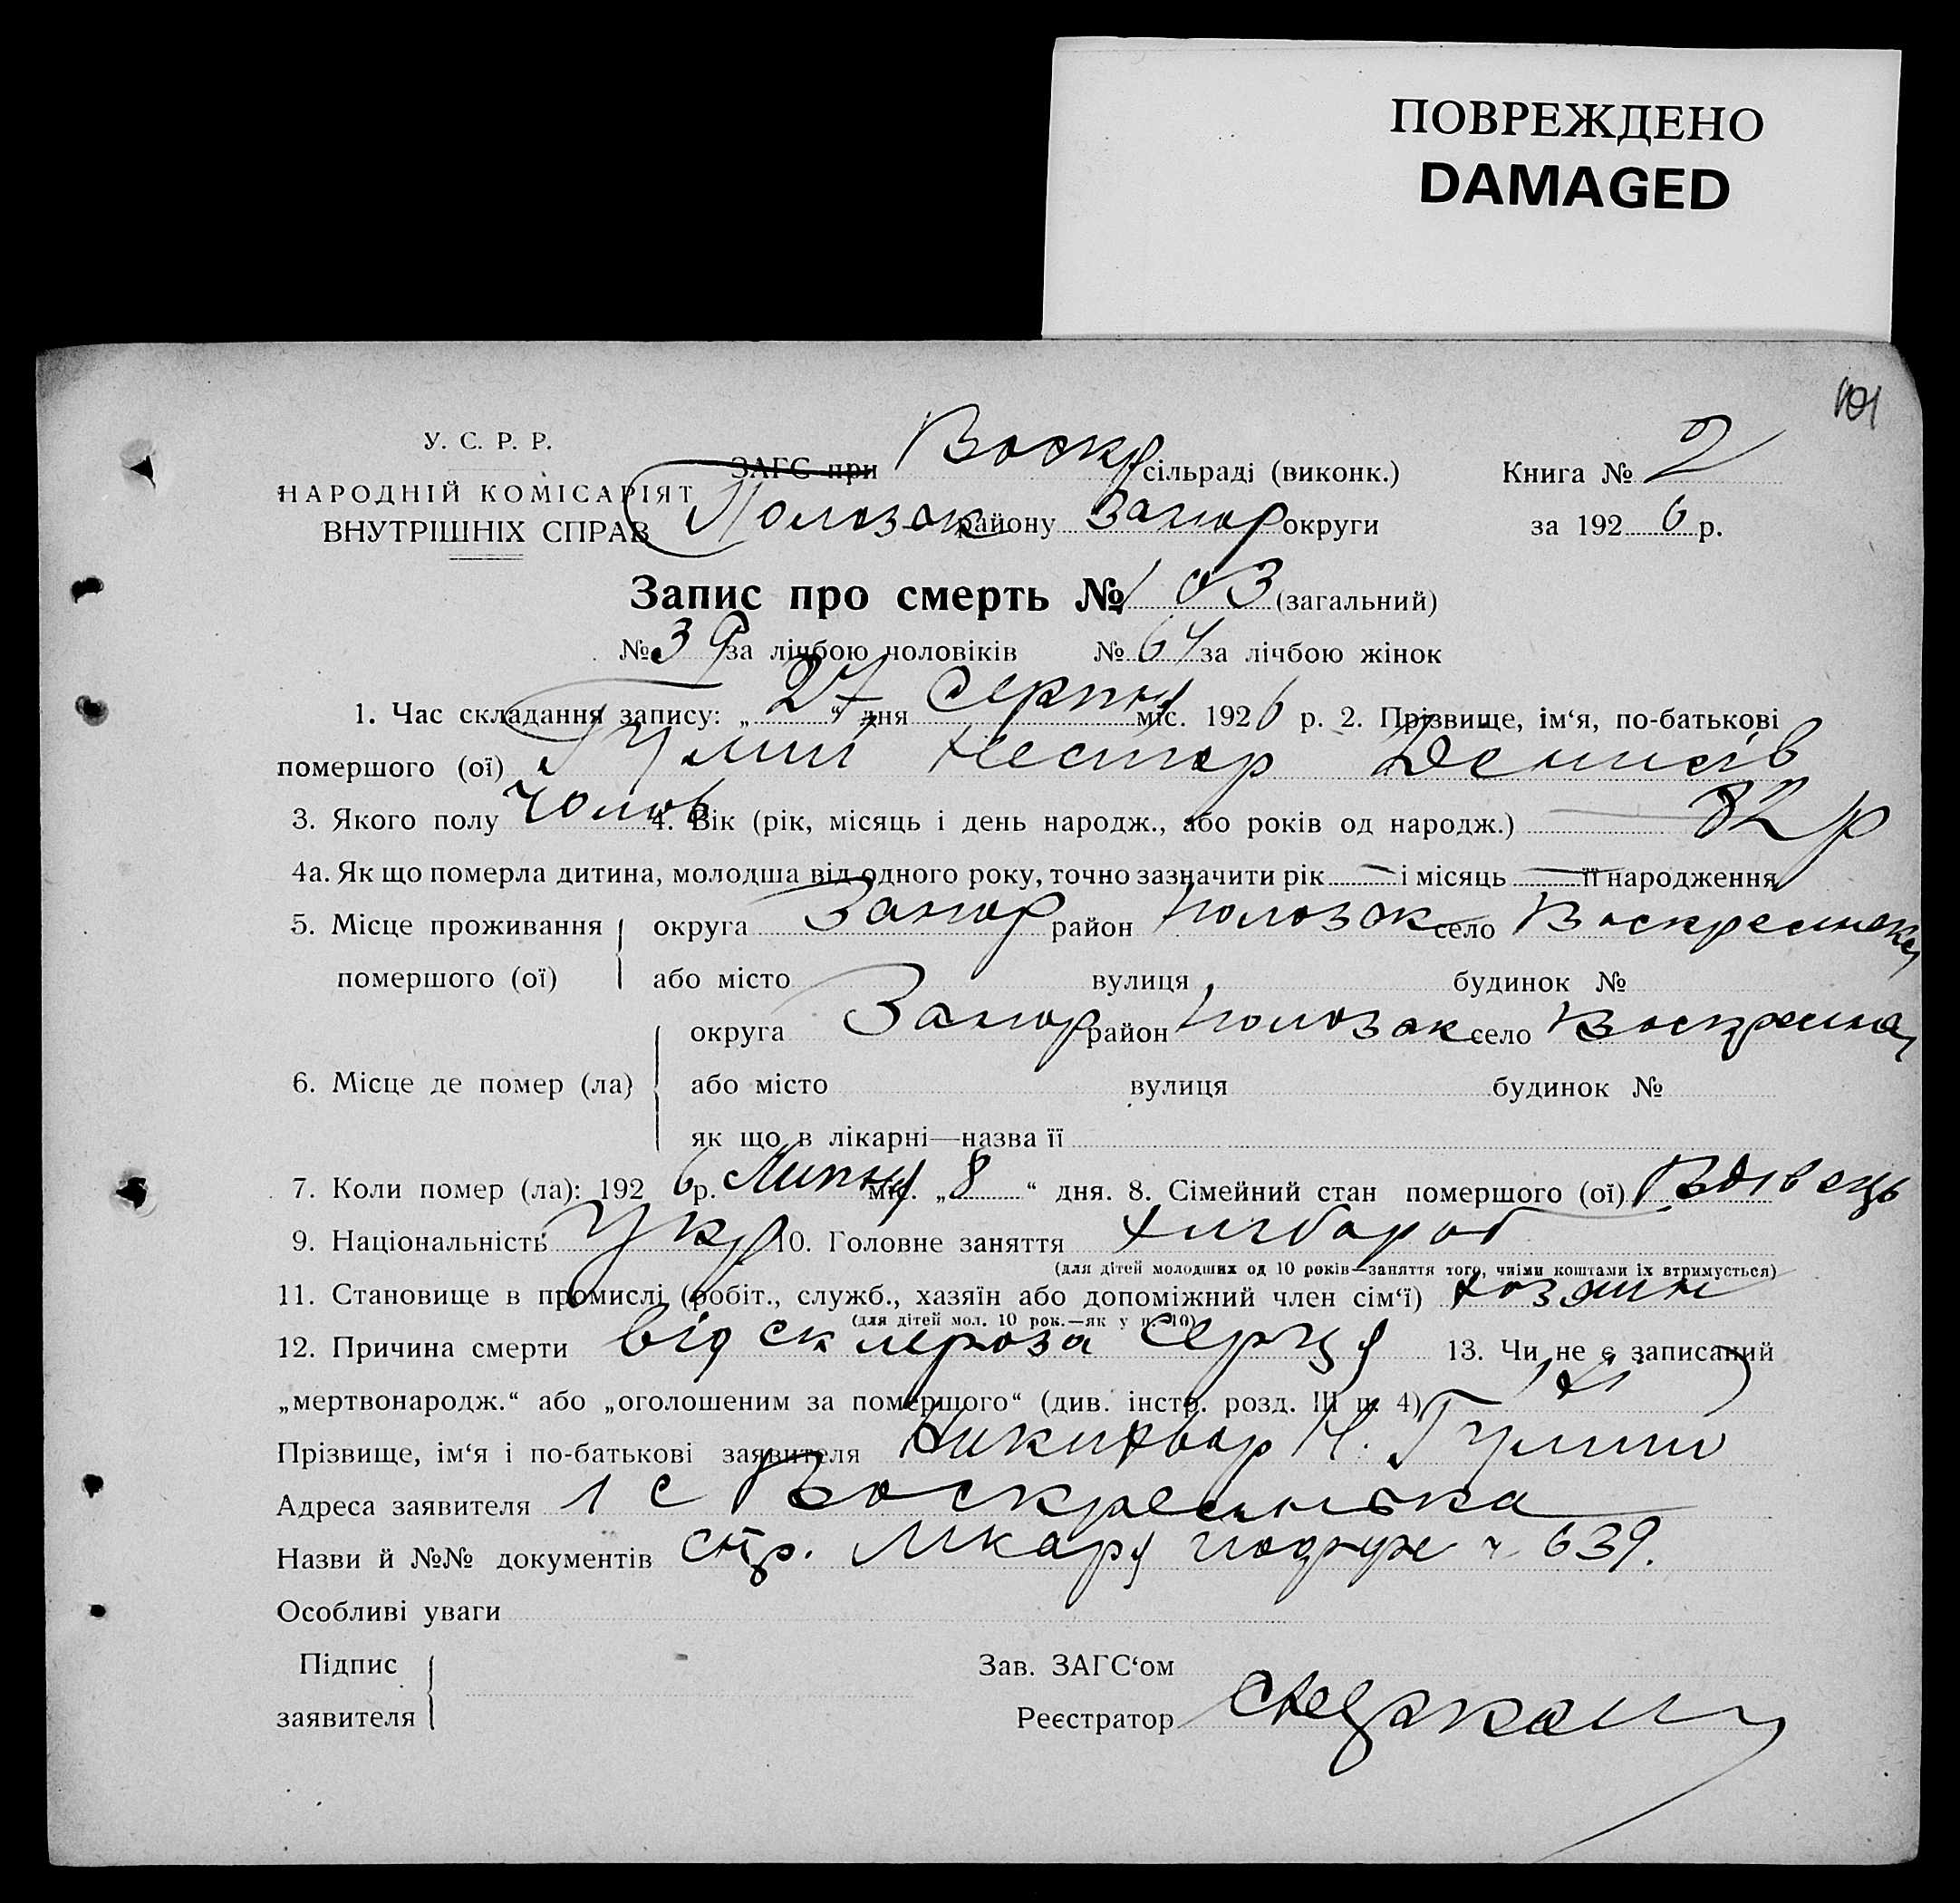 ПОВРЕЖДЕНО
DAMAGED
У. С. Р. Р.
НАРОДНІЙ КОМІСАРІЯТ
ВНУТРІШНІХ СПРАВ
ЗАГС при Воскр сільраді (виконк.) Книга № 2
Пологак району Запор округи за 1926 р.
Запис про смерть № 103 (загальний)
№ 39 за лічбою чоловіків № 64 за лічбою жінок
1. Час складання запису: „27“ дня Серпня міс. 1926 р. 2. Прізвище, ім‘я, по-батькові
помершого (ої) Гулий Нестор Денисів
3. Якого полу Чолов 4. Вік (рік, місяць і день народж., або років од народж.) 82 р
4а. Як що померла дитина, молодша від одного року, точно зазначити рік — і місяць — її народження
5. Місце проживання помершого (ої) округа Запор район Пологак село Воскресенька
або місто вулиця будинок №
6. Місце де помер (ла) округа Запор район Пологак село
або місто вулиця будинок №
як що в лікарні—назва її
7. Коли помер (ла): 1926 р. Липня міс. „8“ дня. 8. Сімейний стан помершого (ої) Вдівець
9. Національність Укр 10. Головне заняття хлібороб
(для дітей молодших од 10 років—заняття того, чиїми коштами їх втримується)
11. Становище в промислі (робіт., служб., хазяїн або допоміжний член сім‘ї) хозяин
(для дітей мол. 10 рок.—як у п. 10)
12. Причина смерти від склероза серця 13. Чи не є записаний
„мертвонародж.“ або „оголошеним за помершого“ (див. інстр. розд. III п. 4) Ні
Прізвище, ім‘я і по-батькові заявителя Никифор Н. Гулий
Адреса заявителя 1 с Воскресенька
Назви й №№ документів лікаря 639.
Особливі уваги
Підпис заявителя
Зав. ЗАГС‘ом
Реєстратор